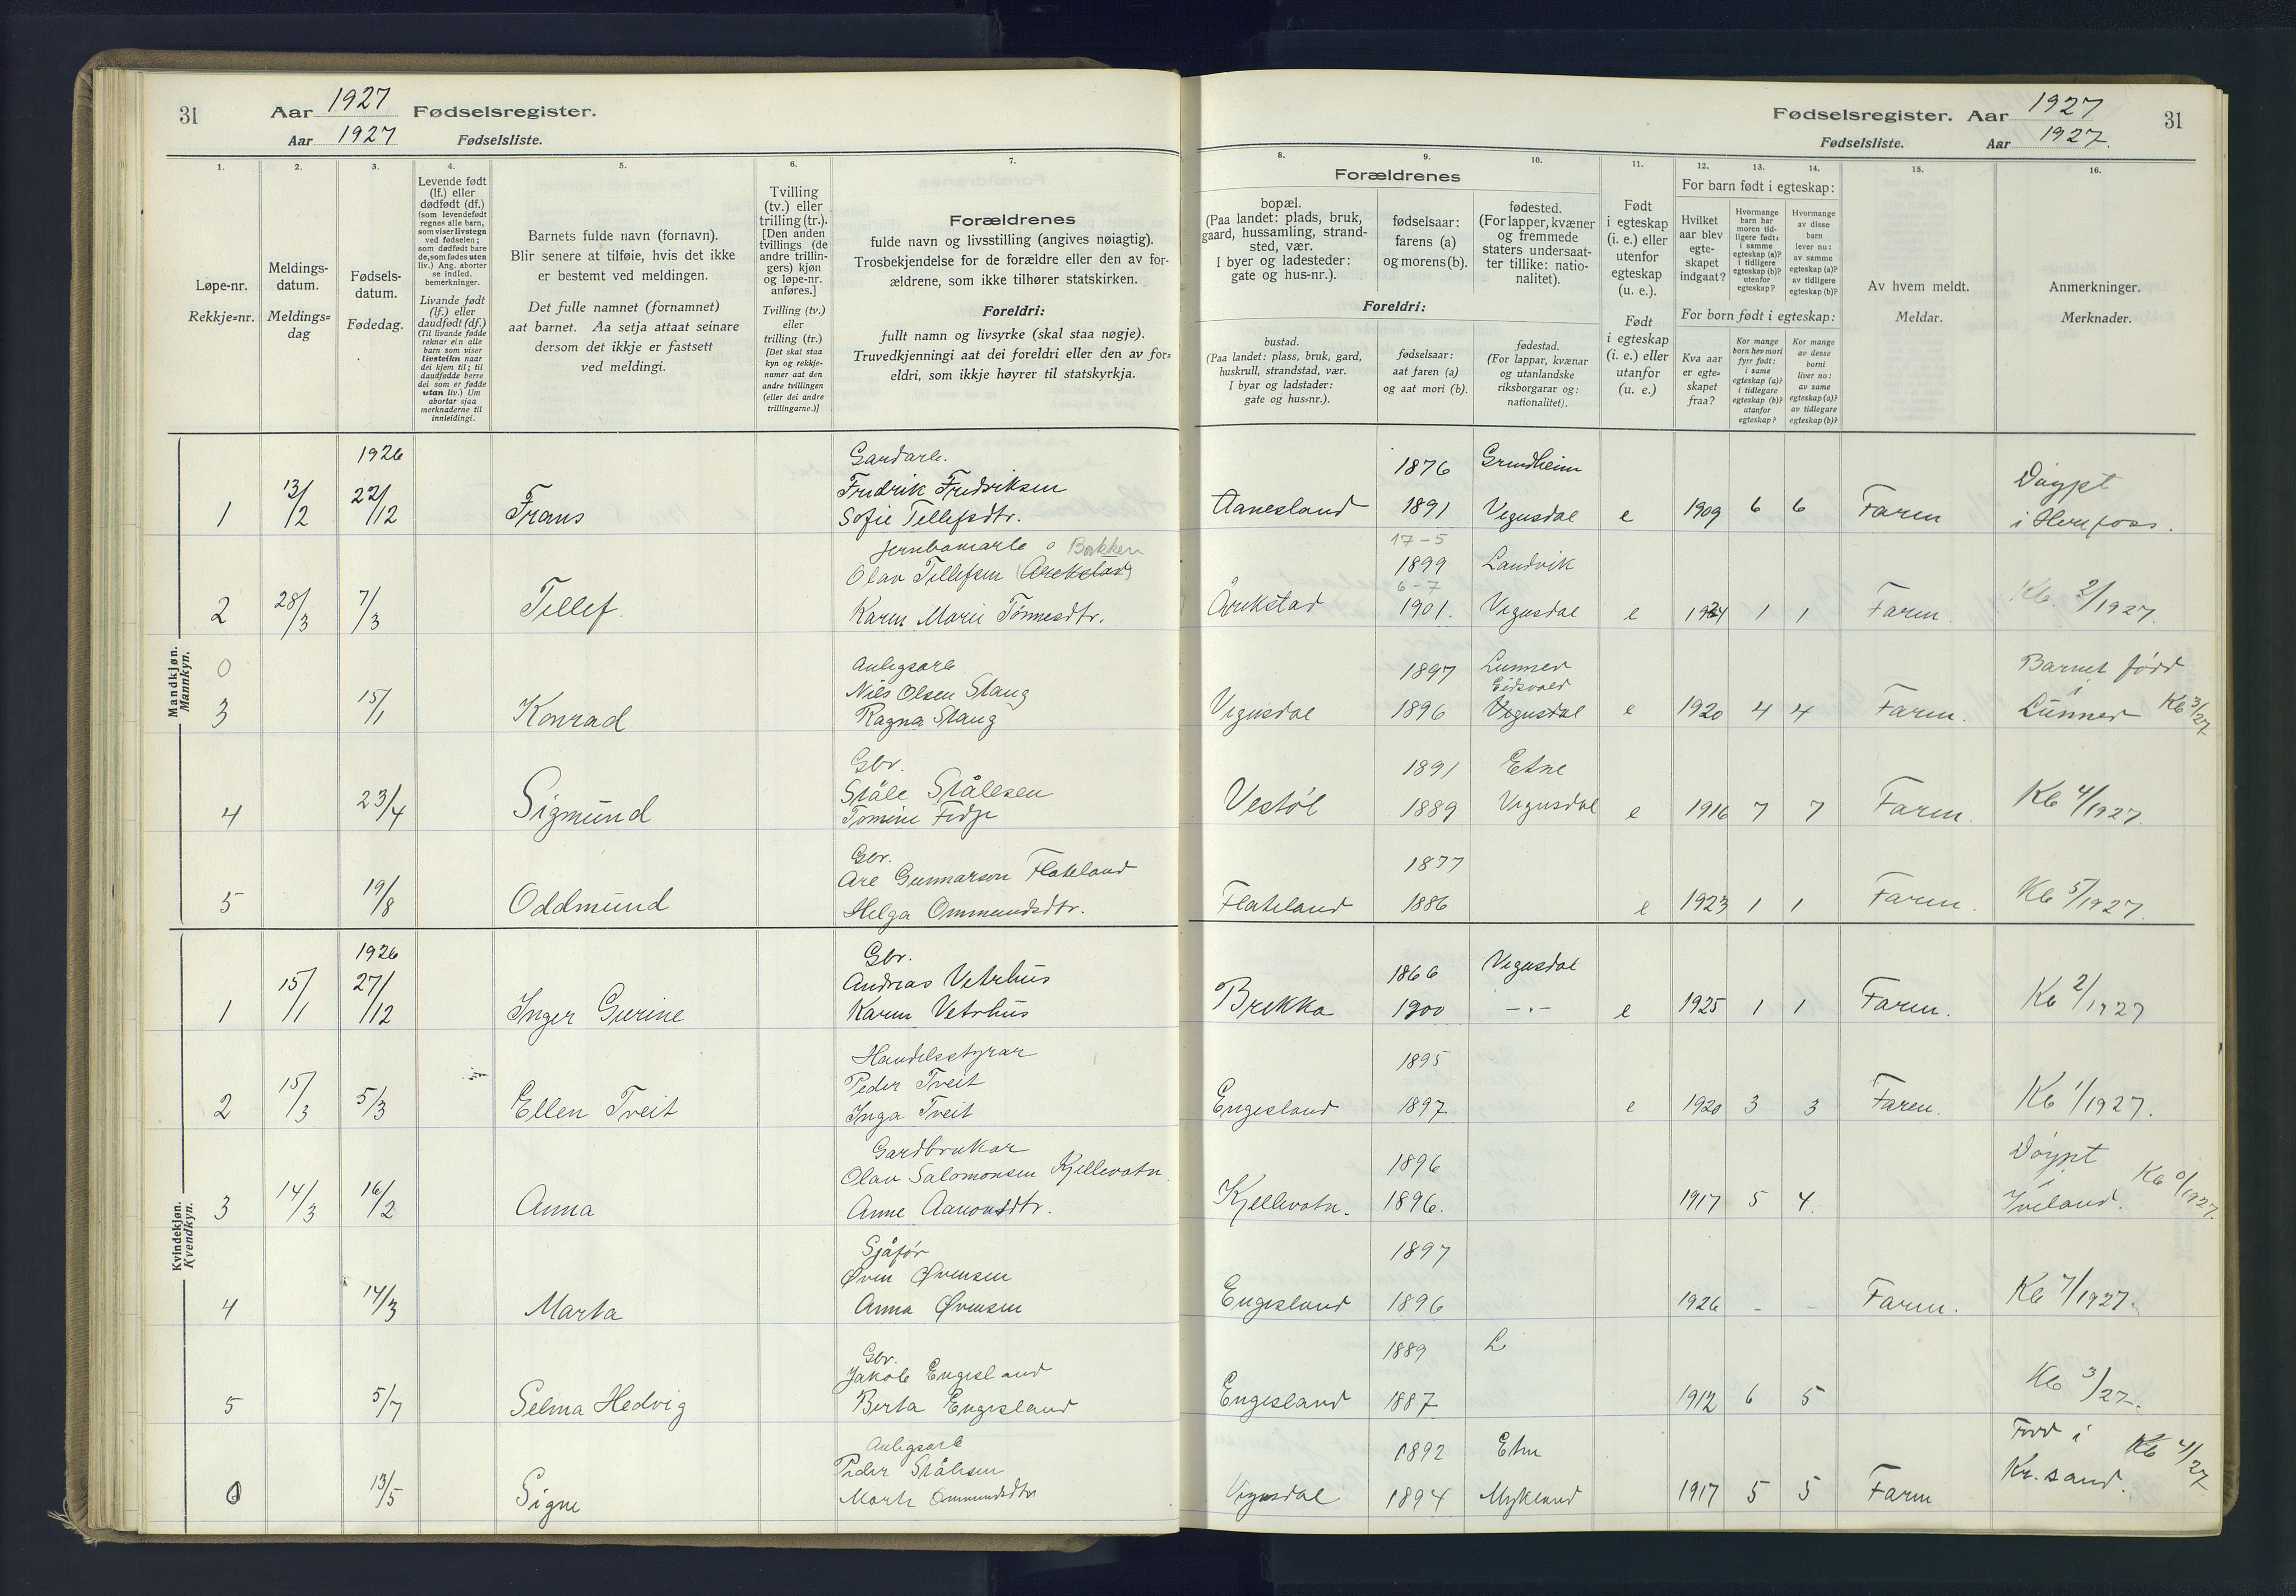 31
Aar 1927 Fødselsregister.
Aar 1927 Fødselsliste.
1.
2.
3.
4.
5.
6.
7.
Løpe-nr.
Rekkje=nr.
Meldings-
datum.
Meldings=
dag
Fødsels-
datum.
Fødedag.
Levende født
(lf.) eller
dødfødt (df.)
(som levendefødt
regnes alle barn,
som viser livstegn
ved fødselen;
som dødfødt bare
de, som fødes uten
liv.) Ang. aborter
se indled.
bemerkninger.
Livande født
(lf.) eller
daudfødt (df.)
(Til livande fødde
reknar ein alle
barn som viser
livsteikn naar
dei kjem til; til
daudfødde berre
dei som er fødde
utan liv.) Um
abortar sjaa
merknaderne til
innleidingi.
Barnets fulde navn (fornavn).
Blir senere at tilføie, hvis det ikke
er bestemt ved meldingen.
Det fulle namnet (fornamnet)
aat barnet. Aa setja attaat seinare
dersom det ikkje er fastsett
ved meldingi.
Tvilling
(tv.) eller
trilling (tr.).
[Den anden
tvillings (de
andre trillin-
gers) kjøn
og løpe-nr.
anføres.]
Tvilling (tv.)
eller
trilling (tr.)
[Det skal staa
kyn og rekkje-
numer aat den
andre tvillingen
(eller dei andre
trillingarne.)]
Forældrenes
fulde navn og livsstilling (angives nøiagtig).
Trosbekjendelse for de forældre eller den av for-
ældrene, som ikke tilhører statskirken.
Foreldri:
fullt namn og livsyrke (skal staa nøgje).
Truvedkjenningi aat dei foreldri eller den av for=
eldri, som ikkje høyrer til statskyrkja.
Mandkjøn.
Mannkyn.
1926
Gardarb.
Fredrik Fredriksen
1 13/2 22/12 Frans Sofie Tellefsdtr.
Jernbanarb o Bakken
Olav Tellefsen (Årekstad)
2 28/3 7/3 Tellef. Karen Marie Tønnesdtr.
0
Anlegsarb
Nils Olsen Staug
3 15/1 Konrad Ragna Staug
Gbr.
Ståle Stålesen
4 23/4 Sigmund Tomine Fidje
Gbr.
Are Gunnarson Flateland
5 19/8 Oddmund Helga Ommundsdtr.
Kvindekjøn.
Kvendkyn.
1926
Gbr.
Andreas Vetrhus
1 15/1 27/12 Inger Gurine Karen Vetrhus
Handelsstyrar
Peder Tveit
2 15/3 5/3 Ellen Tveit Inga Tveit
Gardbrukar
Olav Salomonsen Kjellevatn
3 14/3 16/2 Anna Anne Aanonsdtr.
Sjåfør
Øven Øvensen
4 14/3 Marta Anna Øvensen
Gbr.
Jakob Engesland
5 5/7 Selma Hedvig Berta Engesland
Anlegsarb
Peder Stålesen
6 13/5 Signe Marte Ommundsdtr
Fødselsregister. Aar 1927
31
Fødselsliste. Aar 1927.
8.
9.
10.
11.
12.
13.
14.
15.
16.
Forældrenes
bopæl.
(Paa landet: plads, bruk,
gaard, hussamling, strand-
sted, vær.
I byer og ladesteder:
gate og hus-nr.).
fødselsaar:
farens (a)
og morens (b).
fødested.
(For lapper, kvæner
og fremmede
staters undersaat-
ter tillike: natio-
nalitet).
Foreldri:
bustad.
(Paa landet: plass, bruk, gard,
huskrull, strandstad, vær.
I byar og ladstader:
gate og hus=nr.).
fødselsaar:
aat faren (a)
og aat mori (b).
fødestad.
(For lappar, kvænar
og utanlandske
riksborgarar og:
nationalitet).
Født
i egteskap
(i. e.) eller
utenfor
egteskap
(u. e.).
Født
i egteskap
(i. e.) eller
utanfor
(u. e.)
For barn født i egteskap:
Hvilket
aar blev
egte-
skapet
indgaat?
Hvormange
barn har
moren tid-
ligere født:
i samme
egteskap (a)?
i tidligere
egteskap (b)?
utenfor
egteskap?
Hvormange
av disse
barn
lever nu:
av samme
egteskap (a)?
av tidligere
egteskap (b)?
For born født i egteskap:
Kva aar
er egte=
skapet
fraa?
Kor mange
born hev mori
fyrr født:
i same
egteskap (a)?
i tidlegare
egteskap (b)?
utanfor
egteskap?
Kor mange
av desse
borni
liver no:
av same
egteskap (a)?
av tidlegare
egteskap (b)?
Av hvem meldt.
Meldar.
Anmerkninger.
Merknader.
1876 Grundheim
Døypt
Aanesland 1891 Vegusdal e 1909 6 6 Faren i Herefoss.
17-5
1899 Landvik
6-7
Årekstad 1901. Vegusdal e 1924 1 1 Faren. Kb. 2/1927.
1897 Lunner
Eidsvold
Barnet fødd
i
Vegusdal 1896 Vegusdal e 1920 4 4 Faren. Lunner Kb 3/27
1891 Etne
Vestøl 1889 Vegusdal e 1916 7 7 Faren. Kb 4/1927.
1877
Flateland 1886 e 1923 1 1 Faren. Kb 5/1927.
1866 Vegusdal
Brekka 1900 -"- e 1925 1 1 Faren. Kb 2/1927
1895
Engesland 1897 e 1920 3 3 Faren. Kb 1/1927.
1896
Døypt
i
Kjellevatn. 1896. 1917 5 4. Iveland. Kb 0/1927.
1897
Engesland 1896 1926 - - Faren. Kb 7/1927.
1889 L
Engesland 1887 1912 6 5 Kb 3/27.
1892 Etne
Fødd i
Vegusdal 1894 Mykland 1917 5 5 Faren Kr.sand. Kb 4/27